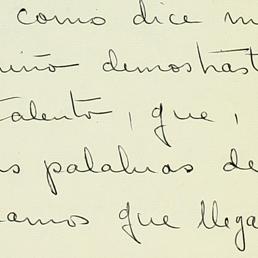 como dice m
niño demostrast
talento, que,
s palabras de
amos que llega